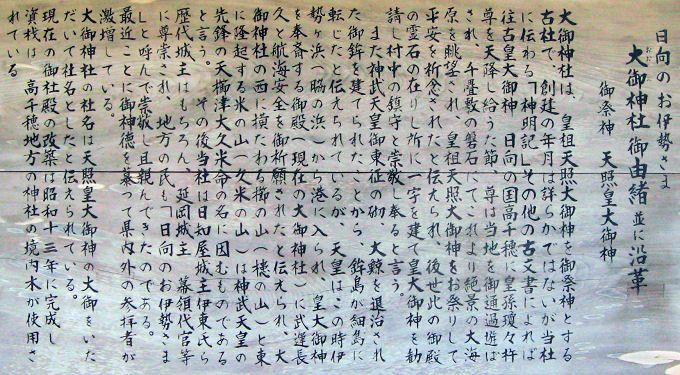 日向のお伊勢さま
大御神社御由緒並に沿革
おお
御祭神　天照皇大御神
大御神社は、皇祖天照大御神を御祭神とする
古社で、創建の年月は詳らかではないが当社
に伝わる「神明記」その他の古文書によれば
往古皇大御神、日向の国高千穂に皇孫瓊々杵
尊を天降し給うた節、尊は当地を御通過遊ば
され、千畳敷の磐石にてこれより絶景の大海
原を眺望され、皇祖天照大御神をお祭りして
平安を祈念されたと伝えられ、後世此の御殿
の霊石の在りし所に一宇を建て皇大御神を勧
請し村中の鎮守と崇敬し奉ると言う。
また神武天皇御東征の砌、大鯨を退治され
た御鉾を建てられたことから、鉾島が細島に
転じたと伝えられているが、天皇はこの時伊
勢ヶ浜（脇の浜）から港に入られ、皇大御神
を奉斎する御殿（現在の大御神社）に武運長
久と航海安全を御祈願されたと伝えられ、大
御神社の西に横たわる櫛の山（橋の山）と東
に隆起する米の山（久米の山）は神武天皇の
先鋒の天櫛津大久米命の名に因むものである
と言う。　その後当社は日知屋城主伊東氏ら
歴代城主はもちろん、延岡城主、幕領代官等
に尊崇され、地方の民も「日向のお伊勢さま
」と呼んで崇敬し且親しんできたのである。
最近ことに御神徳を慕って県内外の参拝者が
激増している。
大御神社の社名は天照皇大御神の大御をいた
だいて社名としたと伝えられている。
現在の御社殿の改築は昭和十三年に完成し
資材は、高千穂地方の神社の境内木が使用さ
れている